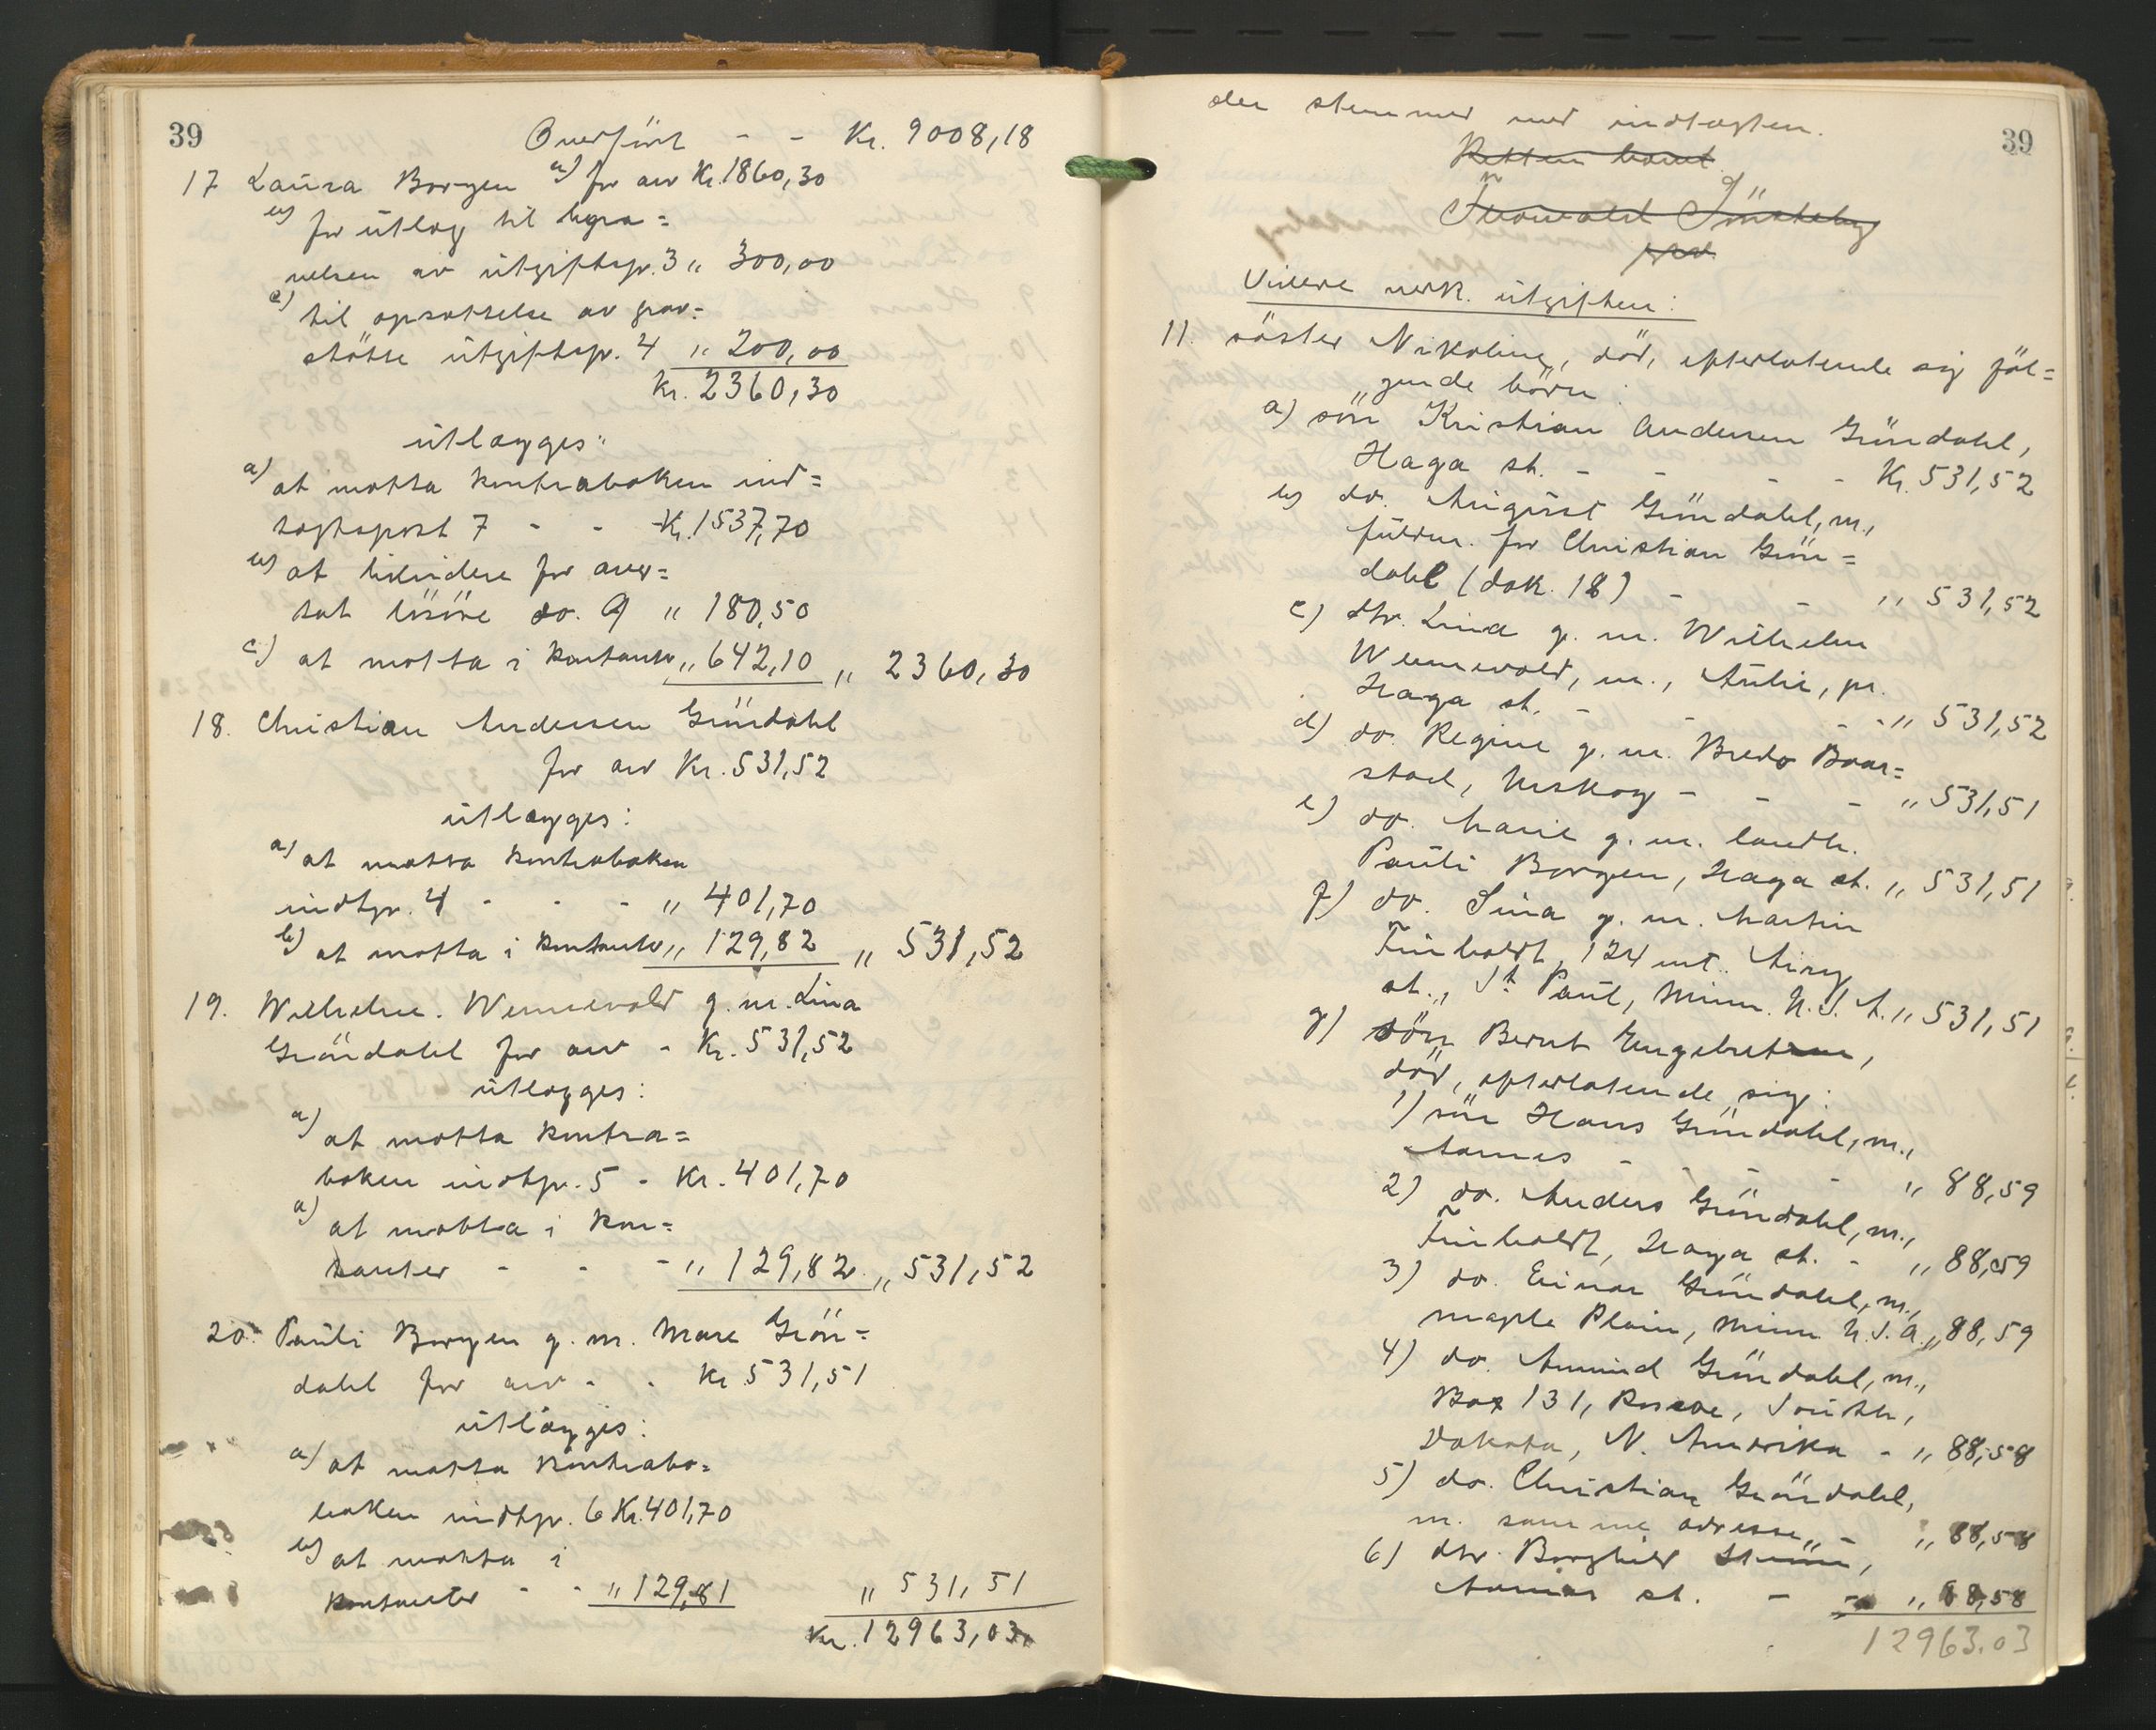 39
Overført - - Kr. 9008,18
17 Laura Borgen a) for arv Kr. 1860,30
b) for utlæg til begra=
velsen av utgiftsp. 3 „ 300,00
c) til opsættelse av grav=
støtte utgiftsp. 4 „ 200,00
Kr. 2360,30
utlægges:
a) at motta kontraboken ind=
tægtspost 7 - - Kr. 1537,70
b) at likvidere for avex=
tat løsøre do. 9 „ 180,50
c) at motta i kontanter „ 642,10 „ 2360,30
18. Christian Andersen Gröndahl
for arv Kr. 531,52
utlægges:
a) at motta kontraboken
indtp. 4 - - - „ 401,70
b) at motta i kontanter „ 129,82 „ 531,52
19. Wilhelm Wennevold g. m. Lina
Gröndahl for arv - Kr. 531,52
utlægges:
a) at motta kontra=
boken indtp. 5 - Kr. 401,70
a) at motta i kon=
tanter - - - „ 129,82 „ 531,52
20. Pauli Borgen g. m. Mare Grön=
dahl for arv - - Kr 531,51
utlægges:
a) at motta kontrabo=
boken indtp. 6 Kr. 401,70
b) at motta i
kontanter - - „ 129,81 „ 531,51
Kr. 12963,03
39
der stemmer med indtægten.
Retten hævet
Thorvald
Videre merk. utgiften:
11. søster Nikoline, død, efterlatende sig føl=
gende børn:
a) søn Kristian Andersen Gröndahl,
Haga st. - - - - Kr. 531,52
b) do. August Gröndahl, m.,
fuldm. for Christian Grön=
dahl (dok. 18) - - „ 531,52
c) dtr. Lina g. m. Wilhelm
Wennevold, m., Aulie, pr.
Haga st. - - - - „ 531,52
d) do. Regine g. m. Bredo Baar=
stad, Urskog - - - „ 531,51
e) do. Marie g. m. landh.
Pauli Borgen, Haga st. „ 531,51
f) do. Sina g. m. Martin
Finholdt, 124 Airy
st., St Paul, Minn. U.S.A. „ 531,51
g) søn Bernt Engebret,
død, efterlatende sig:
1) søn Hans Gröndahl, m.,
Aarnes - - - - „ 88,59
2) do. Anders Gröndahl, m.,
Finholdt, Haga st. - „ 88,59
3) do. Einar Gröndahl, m.,
Maple Plain, Minn. U.S.A. „ 88,59
4) do. Amund Gröndahl, m.,
Box 131, Roscoe, South,
Dakota, N. Amerika - „ 88,58
5) do. Christian Gröndahl,
m. samme adresse, - „ 88,58
6) dtr. Borghild,
Aarnes st. - - „ 88,58
12963.03